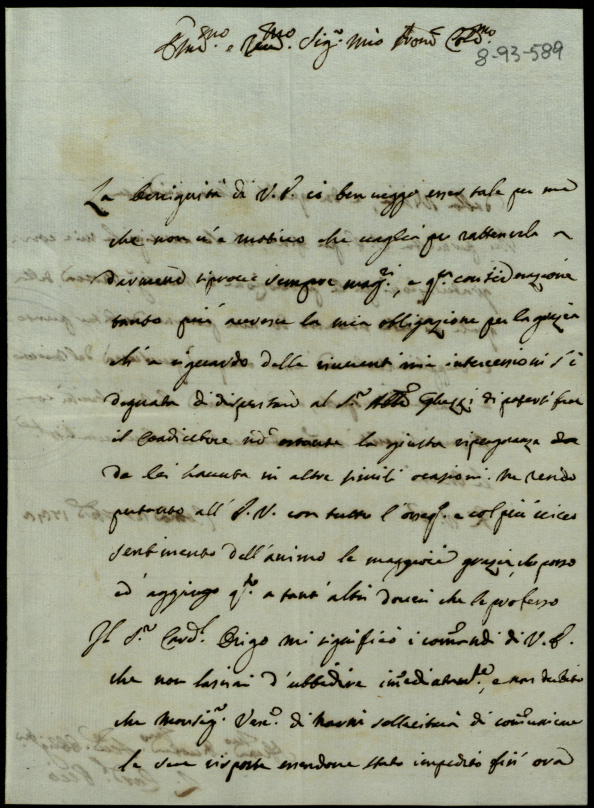 Em.mo e Rev.mo Sig.r mio Pron. Col.mo
8-93-589
La benignità di V. P. io ben veggo esser tale per me
che non v'è motivo che vaglia per rattenerla a
darmene riprove sempre magg.ri, e q.sta considerazione
tanto più accresce la mia obligazione per la grazia
ch'a riguardo delle riverenti mie intercessioni s'è
degnata di dispensare al S.r Ghezzi di potersi fare
il Coadiutore nō ostante la giusta ripugnanza
da lei havuta in altre simili ocasioni. Ne rendo
pertanto all' V. con tutto l'osseq. e col più vivo
sentimento dell'animo le maggiori grazie, che posso
ed aggiungo q.sto a tant'altri doveri che le professo
Il S.r Card.l Origo mi significò i comandi di V. P.
che non lasciai d'ubbidire imediatam.te, e non dubito
che Monsig.r Vesc.o di Narni solleciterà di comunicare
le sue risposte essendone stato impedito fin' ora